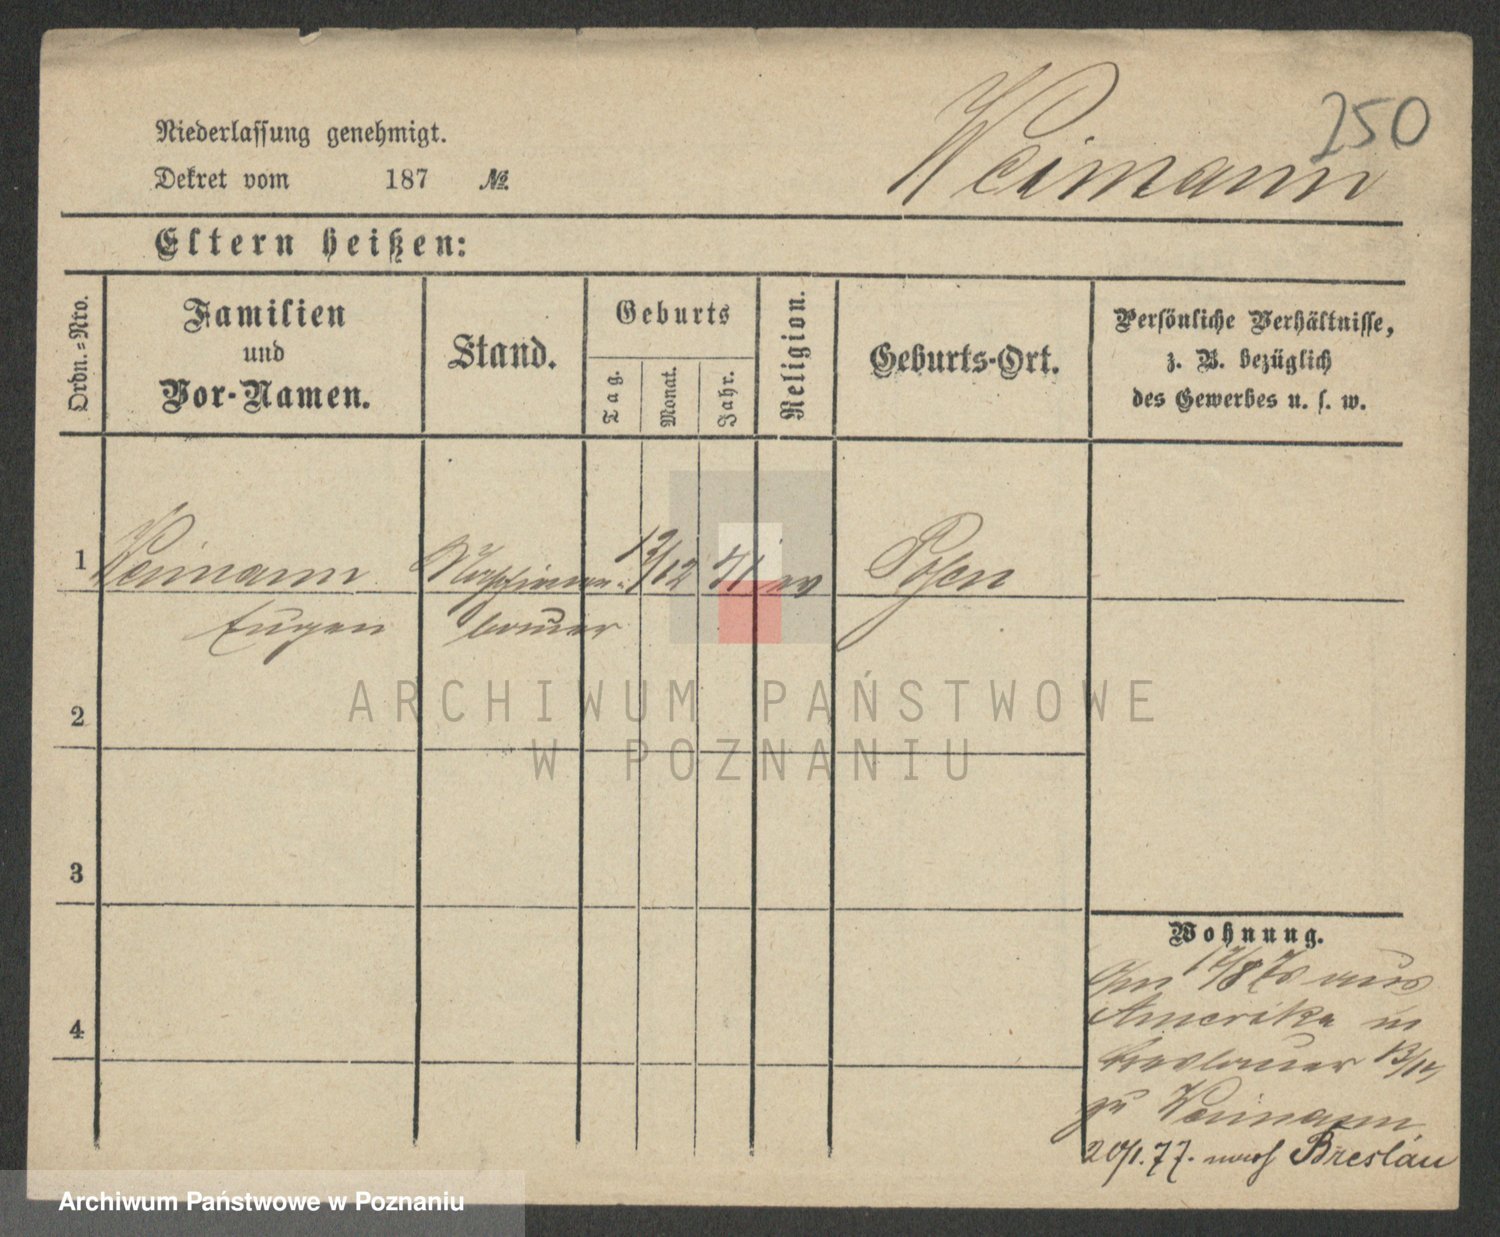 250
Weimann
Niederlassung genehmigt.
Dekret vom 187 №
Eltern heißen:
Ordn.=Nro.
Familien
und
Vor-Namen.
Stand.
Geburts
Tag.
Monat.
Jahr.
Religion.
Geburts-Ort.
Persönliche Verhältnisse,
z. B. bezüglich
des Gewerbes u. s. w.
1 Weimann Maschinen- 13/12 51 ev Posen
Eugen bauer
2
3
4
Wohnung.
aus
Amerika in
Breslauer 13/14
zu Weimann
20/1.77. nach Breslau
ARCHIWUM PAŃSTWOWE
W POZNANIU
Archiwum Państwowe w Poznaniu